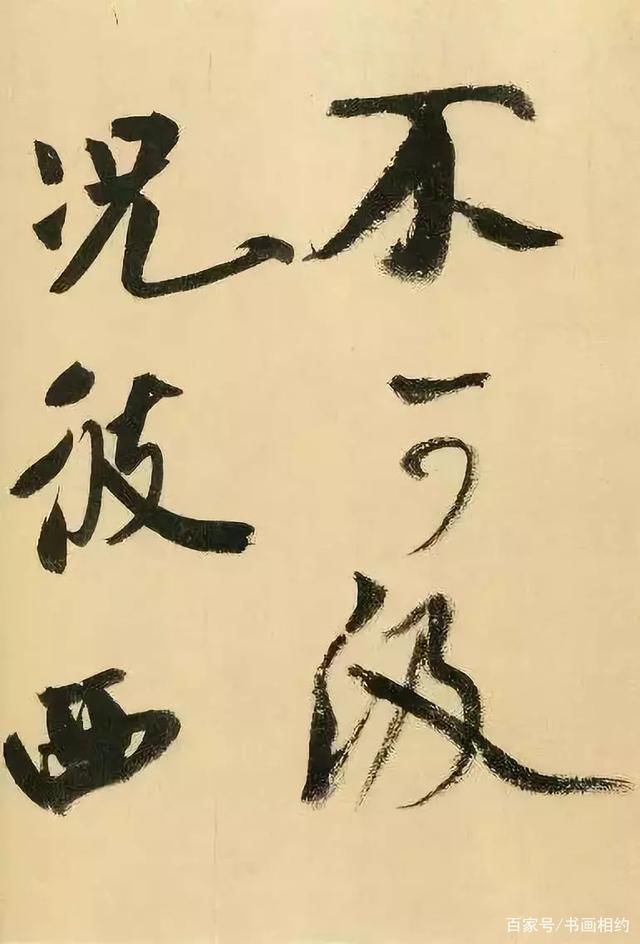 不可汲
况彼西
百家号/书画相约